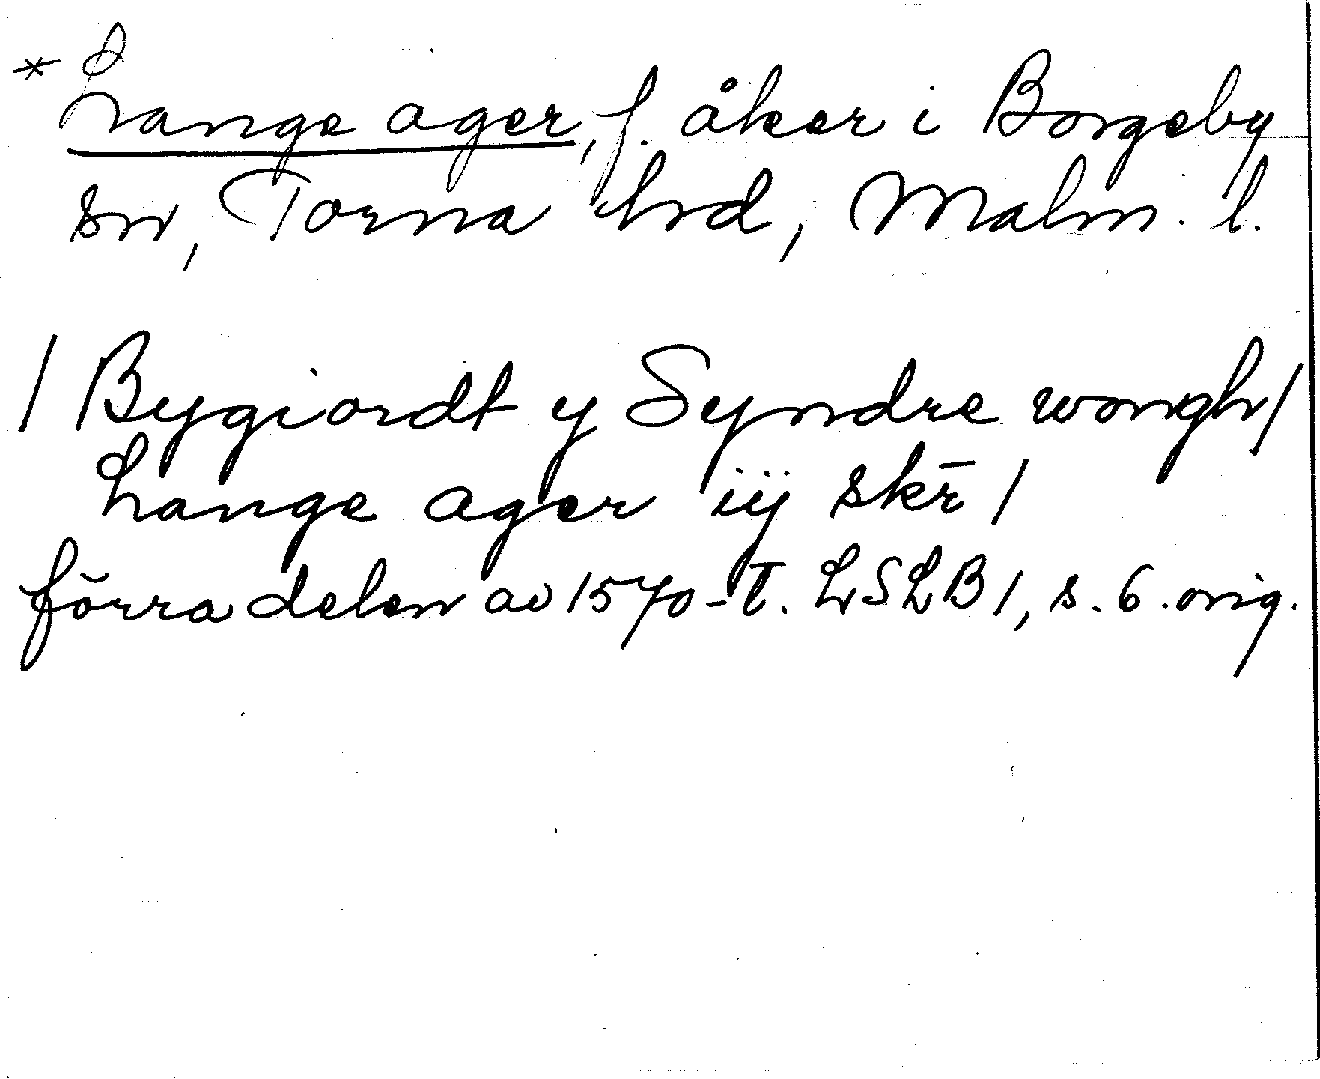 * Lange ager, f. åker i Borgeby
sn, Torna hrd, Malm. l.
/ Bygiordt y Syndre wongh/
Lange ager iij skr̄ /
förra delen av 1570-t. LSLB 1, s. 6. orig.